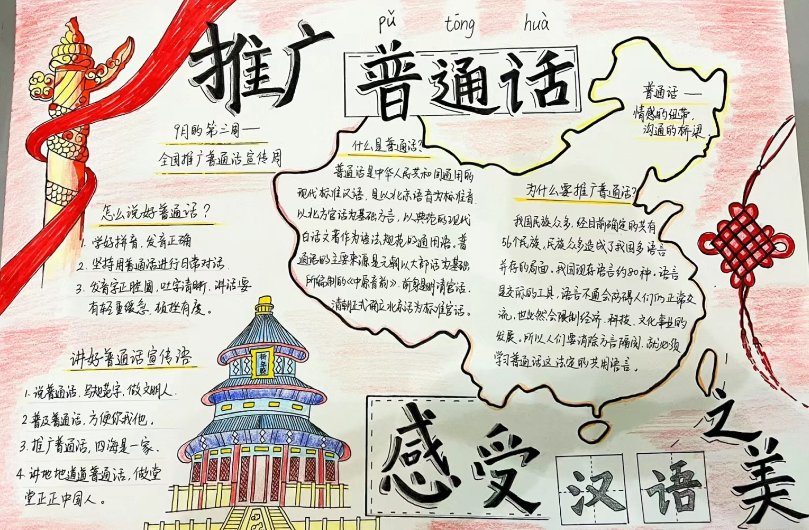 pǔ tōng huà
推广普通话
9月的第三周——
全国推广普通话宣传周
怎么说好普通话？
1. 学好拼音，发音正确
2. 坚持用普通话进行日常对话.
3. 发音字正腔圆，吐字清晰，讲话要
有轻重缓急，
讲好普通话宣传语
1. 说普通话，写规范字，做文明人.
2. 普及普通话，方便你我他。
3. 推广普通话，四海是一家.
4. 讲地地道道普通话，做堂
堂正正中国人。
什么是普通话？
普通话是中华人民共和国通用的
现代标准汉语，是以北京语音为标准音
以北方官话为基础方言，以典范的现代
白话文著作为语法规范的通用语。普
通话的主要来源是元朝以大都话为基础
所编制的《中原音韵》，前身是明清官话。
清朝正式确立北京话为标准官话。
普通话——
情感的纽带，
沟通的桥梁。
为什么要推广普通话？
我国民族众多，经目前确定的共有
56个民族，民族众多造成了我国多语言
并存的局面，我国现在语言约80种。语言
是交际的工具，语言不通会妨碍人们的正常交
流，也必然会限制经济、科技、文化事业的
发展。所以人们要消除方言隔阂，就必须
学习普通话这法定的共用语言。
感受汉语之美